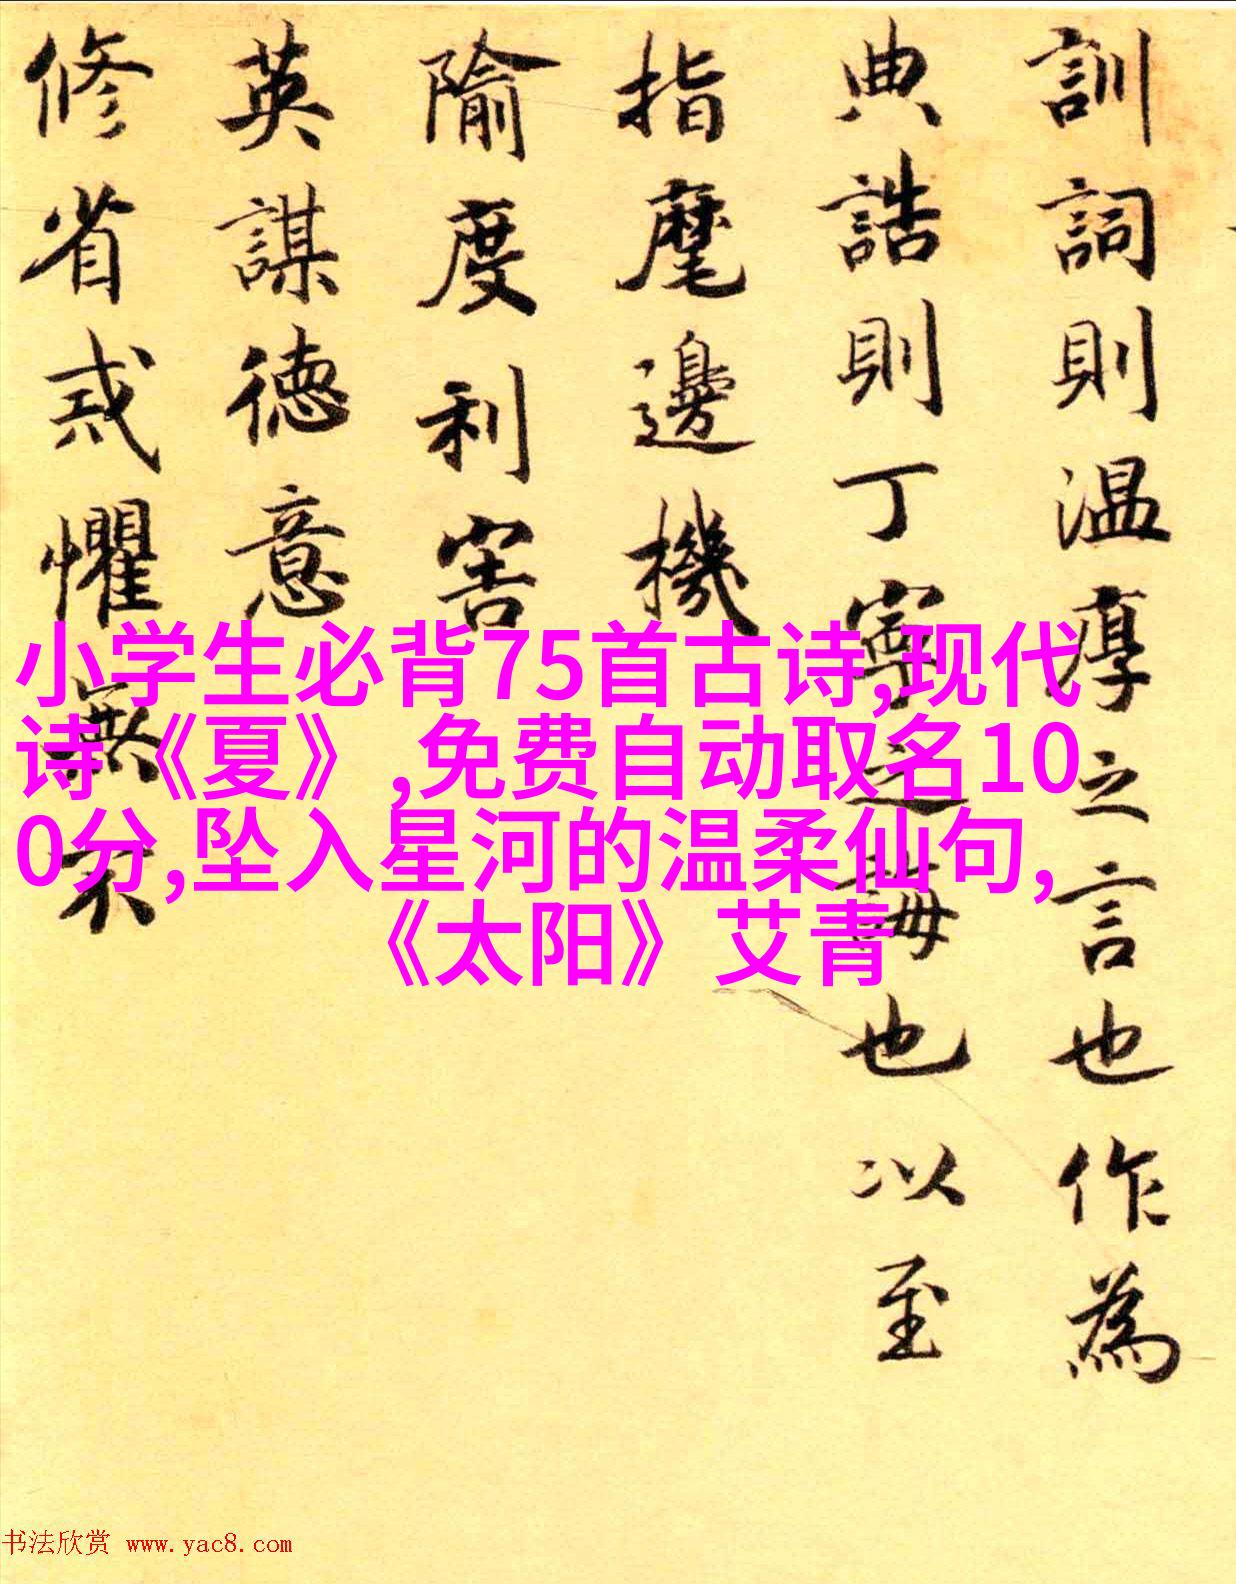 訓詞則溫厚之言也作為
典誥則丁寧之誨也以至
指麾邊機
隃度利害
英謀德意
修省戒懼無不
小学生必背75首古诗,现代
诗《夏》,免费自动取名10
0分,坠入星河的温柔仙句,
《太阳》艾青
书法欣赏 www.yac8.com